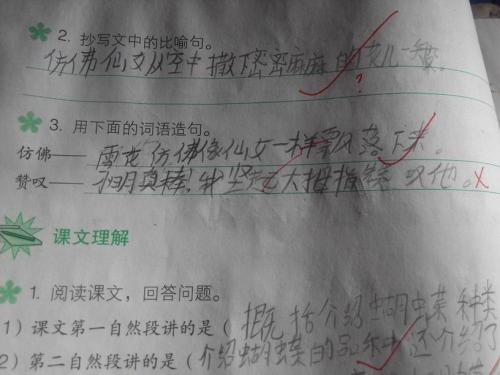 2. 抄写文中的比喻句。
仿佛仙女从空中撒下密密麻麻的
3. 用下面的词语造句。
仿佛—— 雪花仿佛像仙女一样飘落下来。
赞叹—— 真棒!我竖起大拇指 叹他。
课文理解
1. 阅读课文,回答问题。
1)课文第一自然段讲的是( 概括介绍蝴蝶 种类
2)第二自然段讲的是( 介绍蝴蝶的品 还介绍了